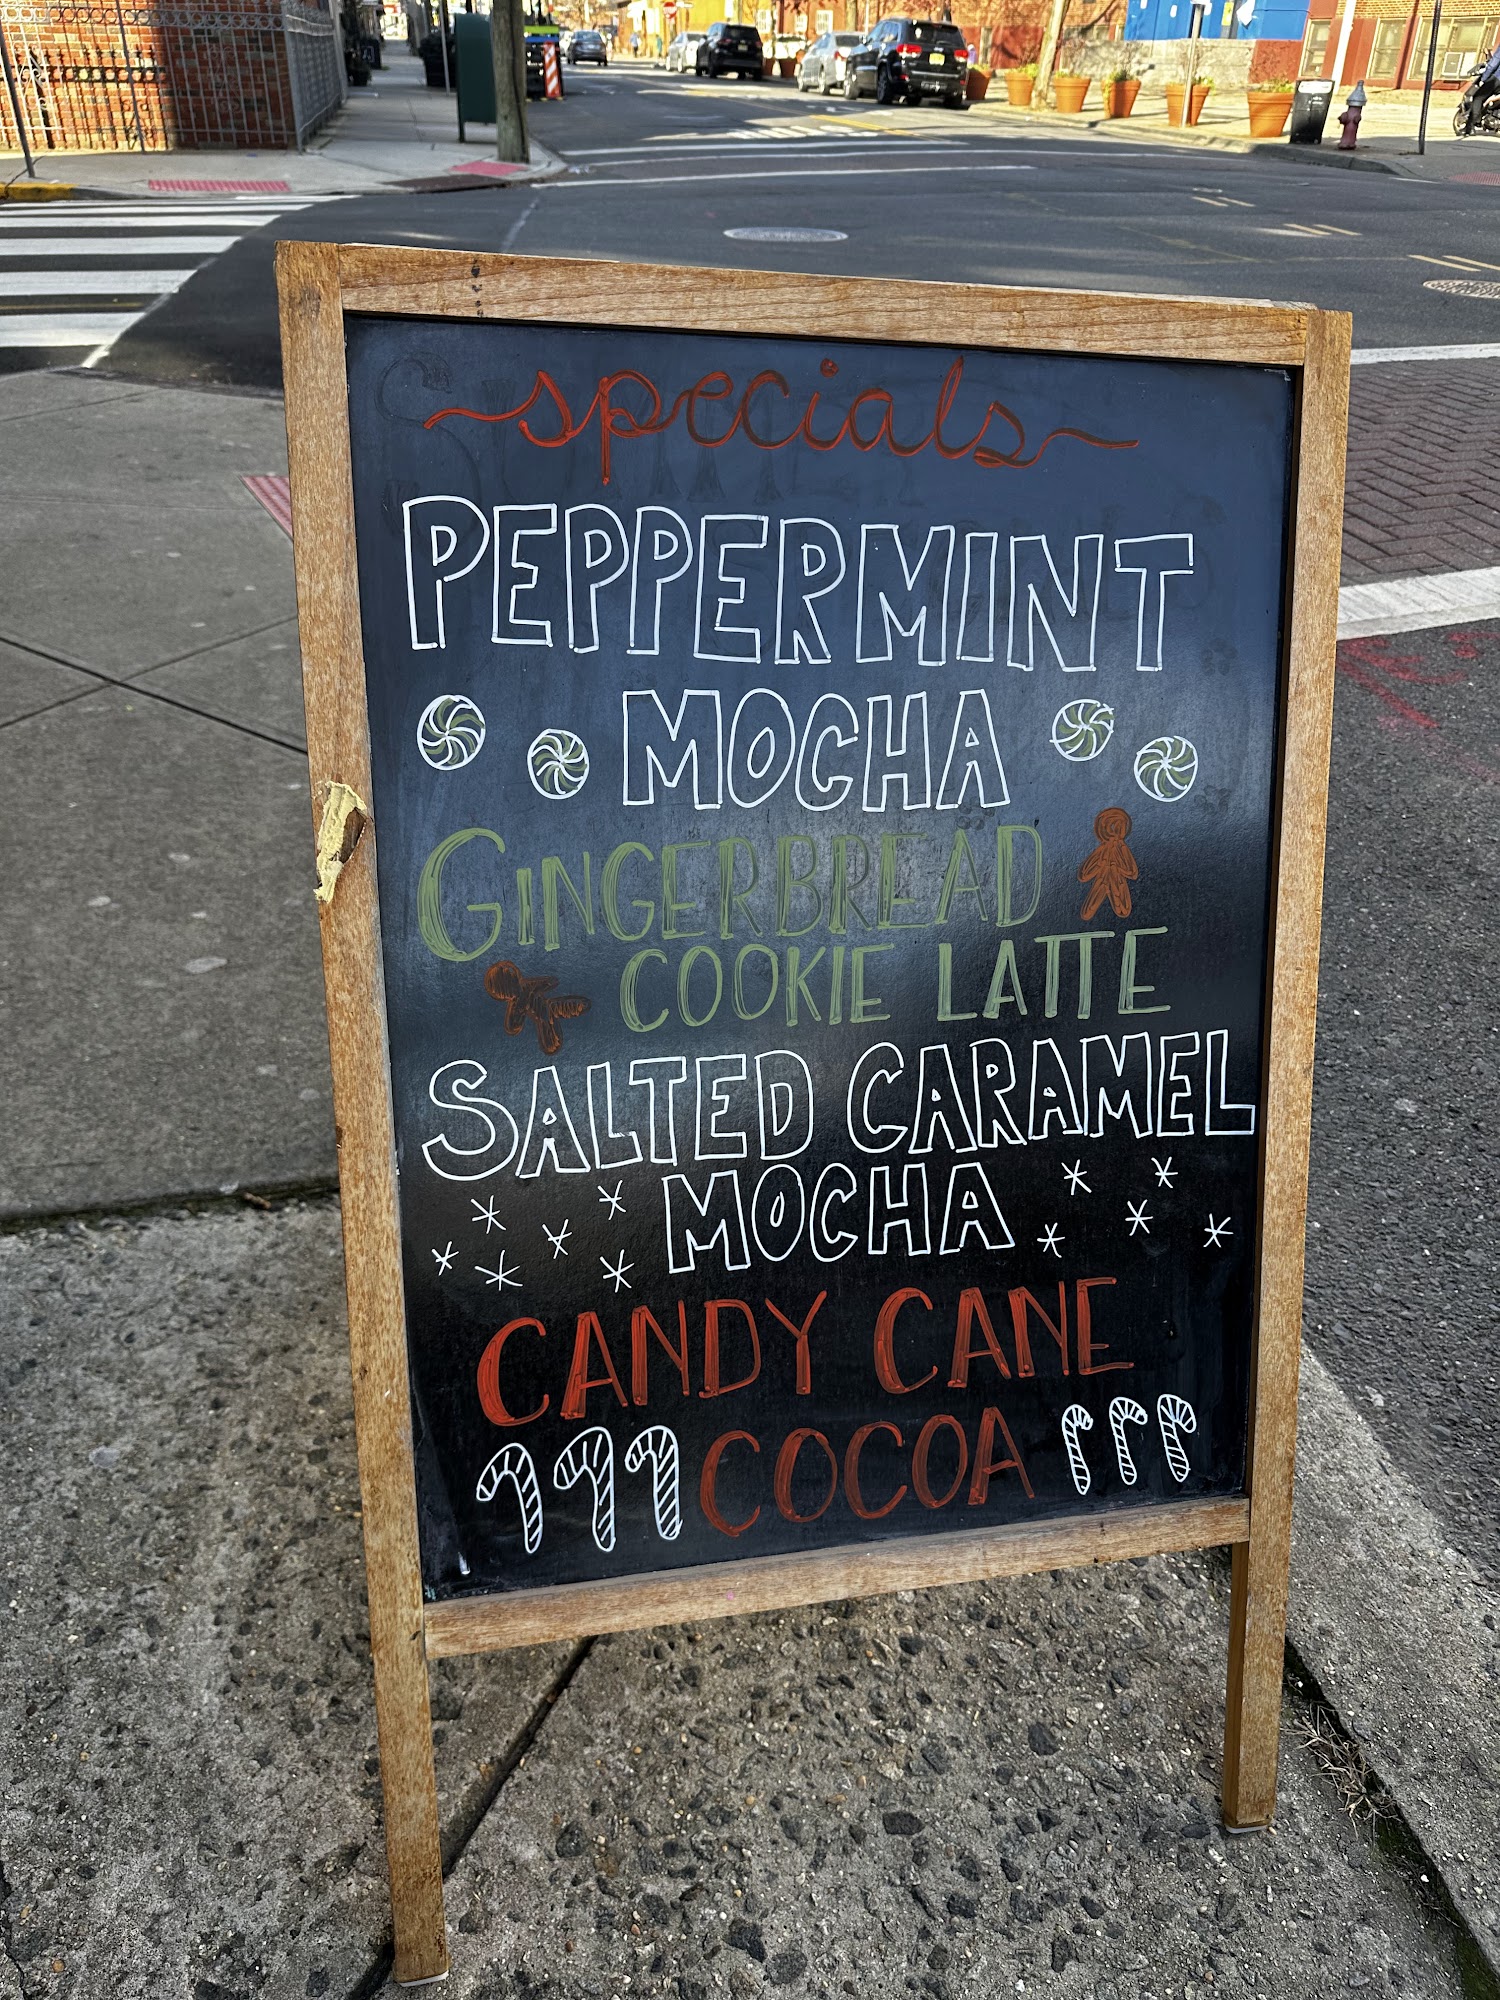 specials
PEPPERMINT
MOCHA
GINGERBREAD
COOKIE LATTE
SALTED CARAMEL
MOCHA
CANDY CANE
COCOA